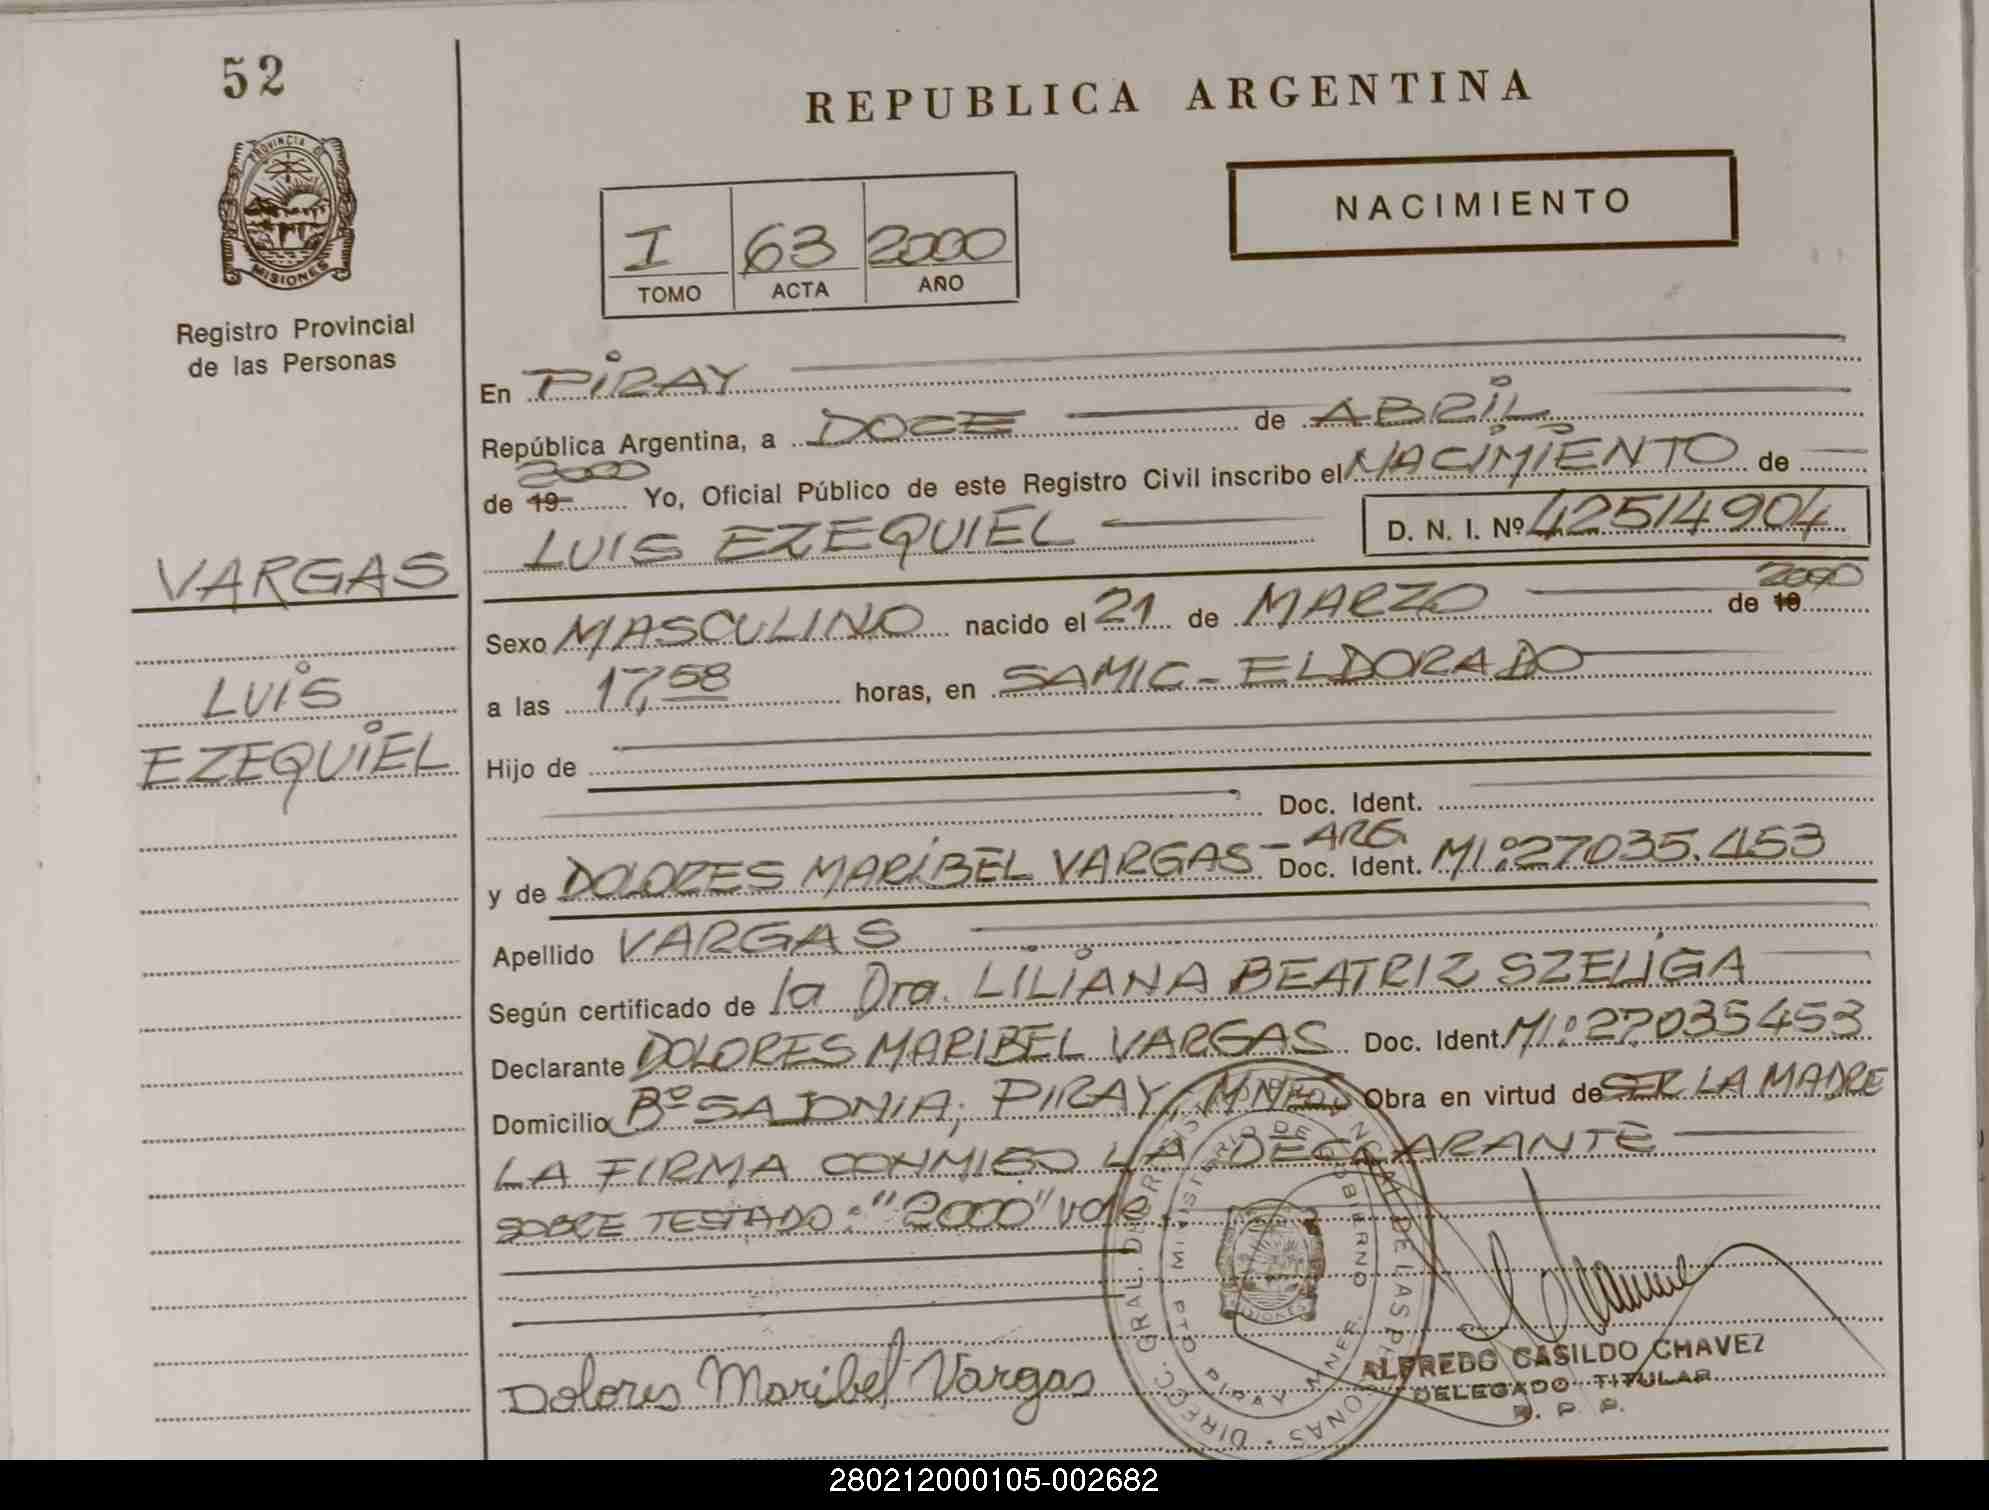 52
REPUBLICA ARGENTINA
PROVINCIA DE
MISIONES
Registro Provincial
de las Personas
NACIMIENTO
I 63 2000
TOMO ACTA AÑO
En PIRAY
República Argentina, a DOCE de ABRIL
2000
de 19 Yo, Oficial Público de este Registro Civil inscribo el NACIMIENTO de
LUIS EZEQUIEL D. N. I. Nº 42514904
VARGAS
LUIS
EZEQUIEL
2000
Sexo MASCULINO nacido el 21 de MARZO de 19
a las 17,58 horas, en SAMIC - ELDORADO
Hijo de
Doc. Ident.
y de DOLORES MARIBEL VARGAS - ARG Doc. Ident. MI: 27035.453
Apellido VARGAS
Según certificado de la Dra. LILIANA BEATRIZ SZELIGA
Declarante DOLORES MARIBEL VARGAS Doc. Ident. MI: 27035453
Domicilio Bº SAJONIA, PIRAY, MNES Obra en virtud de SER LA MADRE
LA FIRMA CONMIGO LA DECLARANTE
SOBRE TESTADO: "2000" vale
Dolores Maribel Vargas
ALFREDO CASILDO CHAVEZ
DELEGADO TITULAR
R. P. P.
280212000105-002682